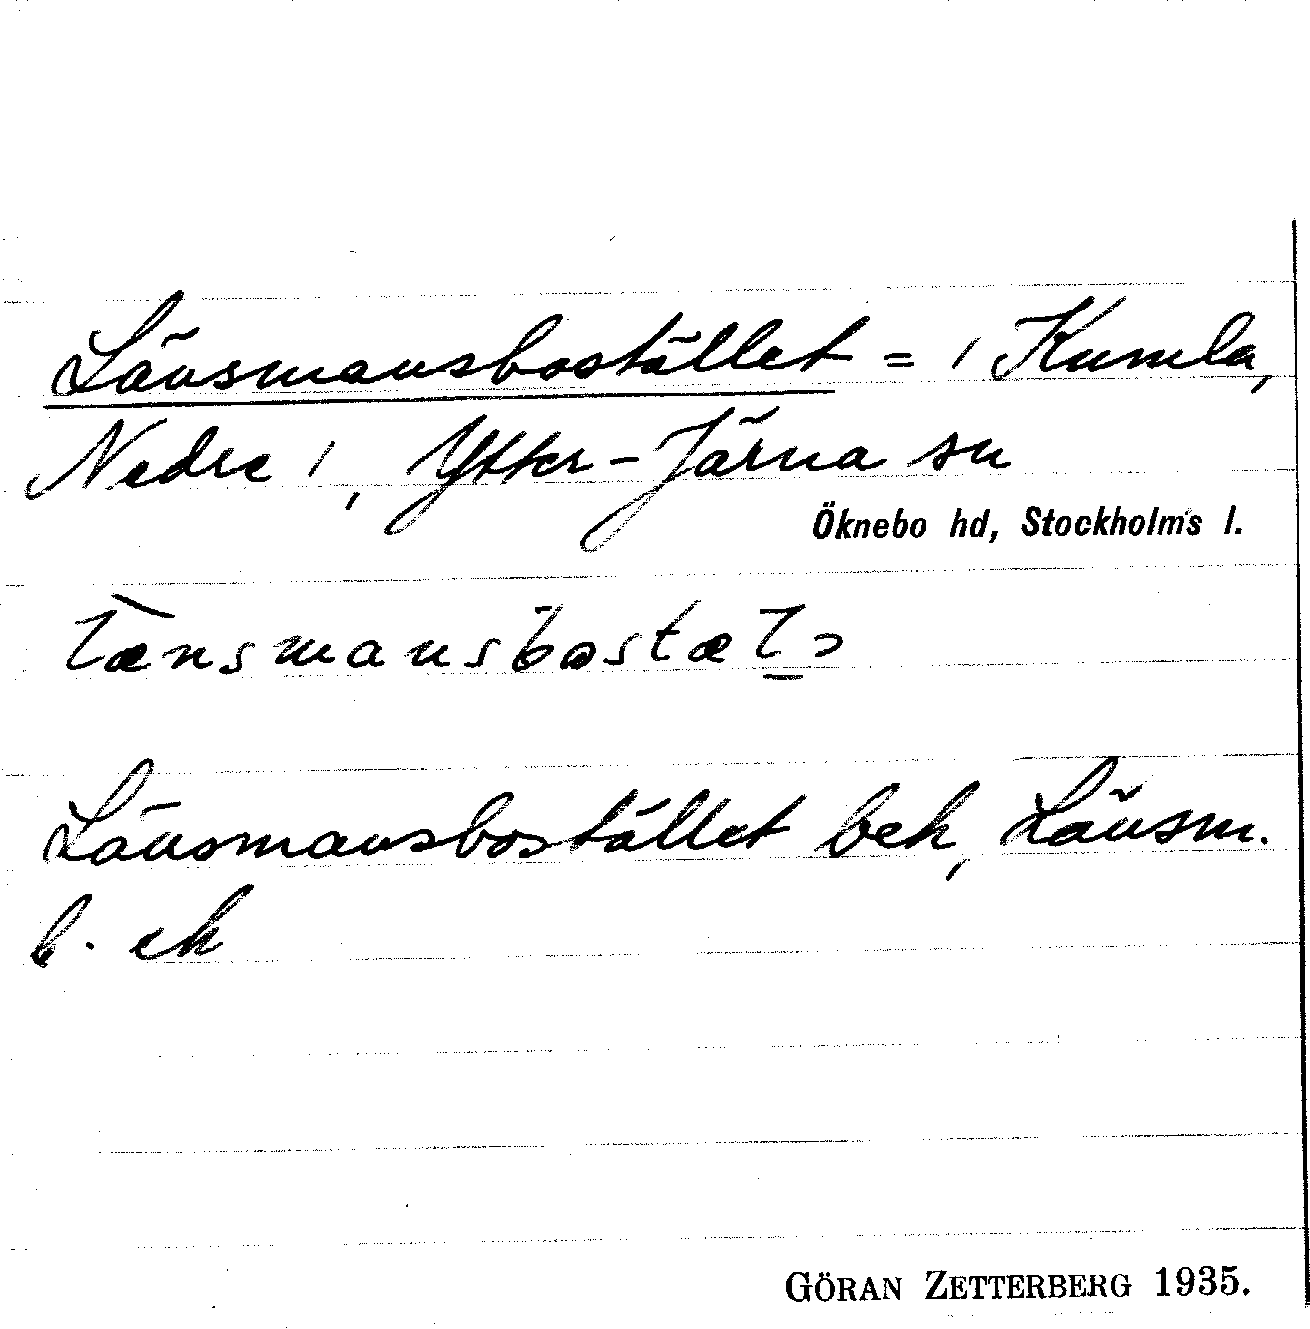 Länsmansbostället = / Kumla,
Nedre /, Ytter-Järna sn
Öknebo hd, Stockholm's l.
Länsmansbostället bek, Länsm.
b. ek
GÖRAN ZETTERBERG 1935.